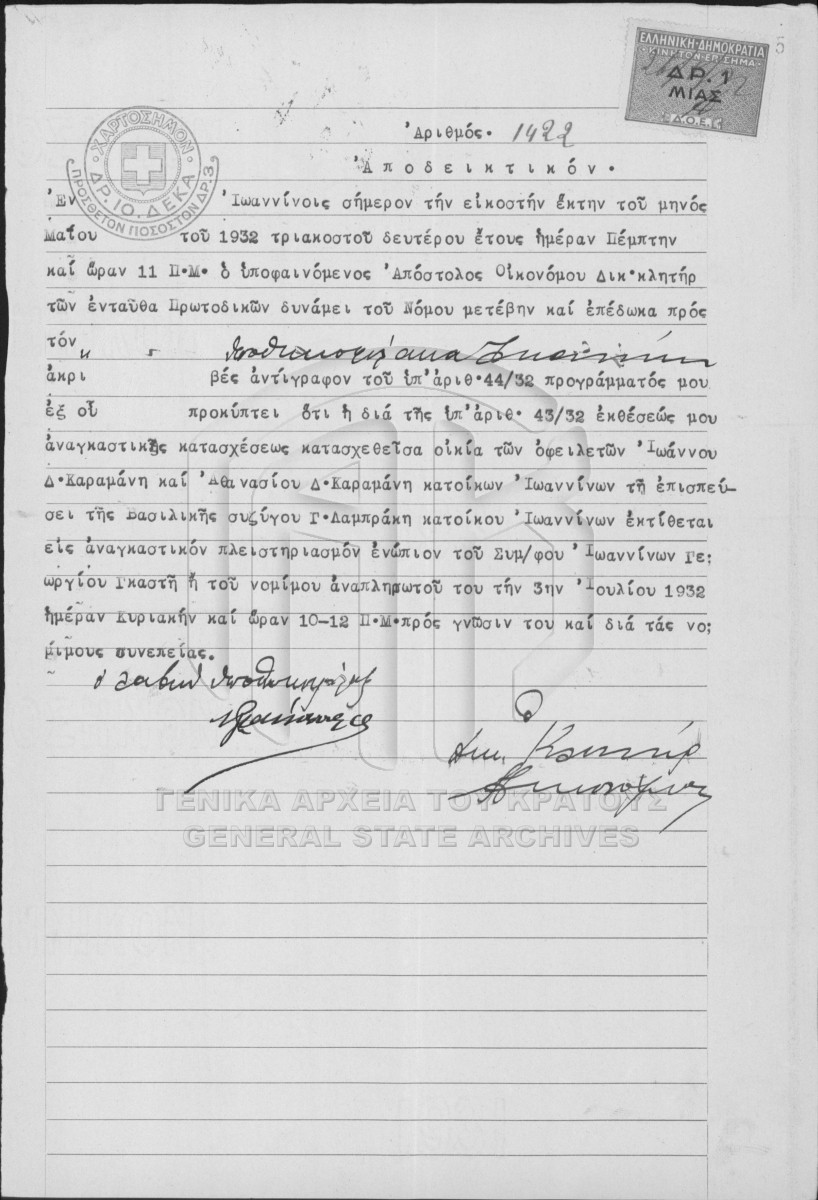 ΕΛΛΗΝΙΚΗ·ΔΗΜΟΚΡΑΤΙΑ
ΚΙΝΗΤΟΝ·ΕΠΙΣΗΜΑ
ΔΡ. 1
ΜΙΑΣ
Δ.Ο.Ε.
ΧΑΡΤΟΣΗΜΟΝ
ΔΡ. 10. ΔΕΚΑ
ΠΡΟΣΘΕΤΟΝ ΠΟΣΟΣΤΟΝ ΔΡ. 3.
Ἀριθμός. 1422
Ἀποδεικτικόν.
Ἐν Ἰωαννίνοις σήμερον τήν εἰκοστήν ἕκτην τοῦ μηνός
Μαΐου τοῦ 1932 τριακοστοῦ δευτέρου ἔτους ἡμέραν Πέμπτην
καί ὥραν 11 Π.Μ. ὁ ὑποφαινόμενος Ἀπόστολος Οἰκονόμου Δικ.κλητήρ
τῶν ἐνταῦθα Πρωτοδικῶν δυνάμει τοῦ Νόμου μετέβην καί ἐπέδωκα πρός
τόν
ἀκρι βές ἀντίγραφον τοῦ ὑπ' ἀριθ.44/32 προγράμματός μου
ἐξ οὗ προκύπτει ὅτι ἡ διά τῆς ὑπ' ἀριθ. 43/32 ἐκθέσεώς μου
ἀναγκαστικῆς κατασχέσεως κατασχεθεῖσα οἰκία τῶν ὀφειλετῶν Ἰωάννου
Δ.Καραμάνη καί Ἀθανασίου Δ.Καραμάνη κατοίκων Ἰωαννίνων τῇ ἐπισπεύ-
σει τῆς Βασιλικῆς συζύγου Γ.Λαμπράκη κατοίκου Ἰωαννίνων ἐκτίθεται
εἰς ἀναγκαστικόν πλειστηριασμόν ἐνώπιον τοῦ Συμ/φου Ἰωαννίνων Γε;
ωργίου Γκαστῆ ἤ τοῦ νομίμου ἀναπληρωτοῦ του τήν 3ην Ἰουλίου 1932
ἡμέραν Κυριακήν καί ὥραν 10-12 Π.Μ.πρός γνῶσιν του καί διά τάς νο;
μίμους συνεπείας.
ὁ λαβών
Ὁ
Δικ. Κλητήρ
ΓΕΝΙΚΑ ΑΡΧΕΙΑ ΤΟΥ ΚΡΑΤΟΥΣ
GENERAL STATE ARCHIVES